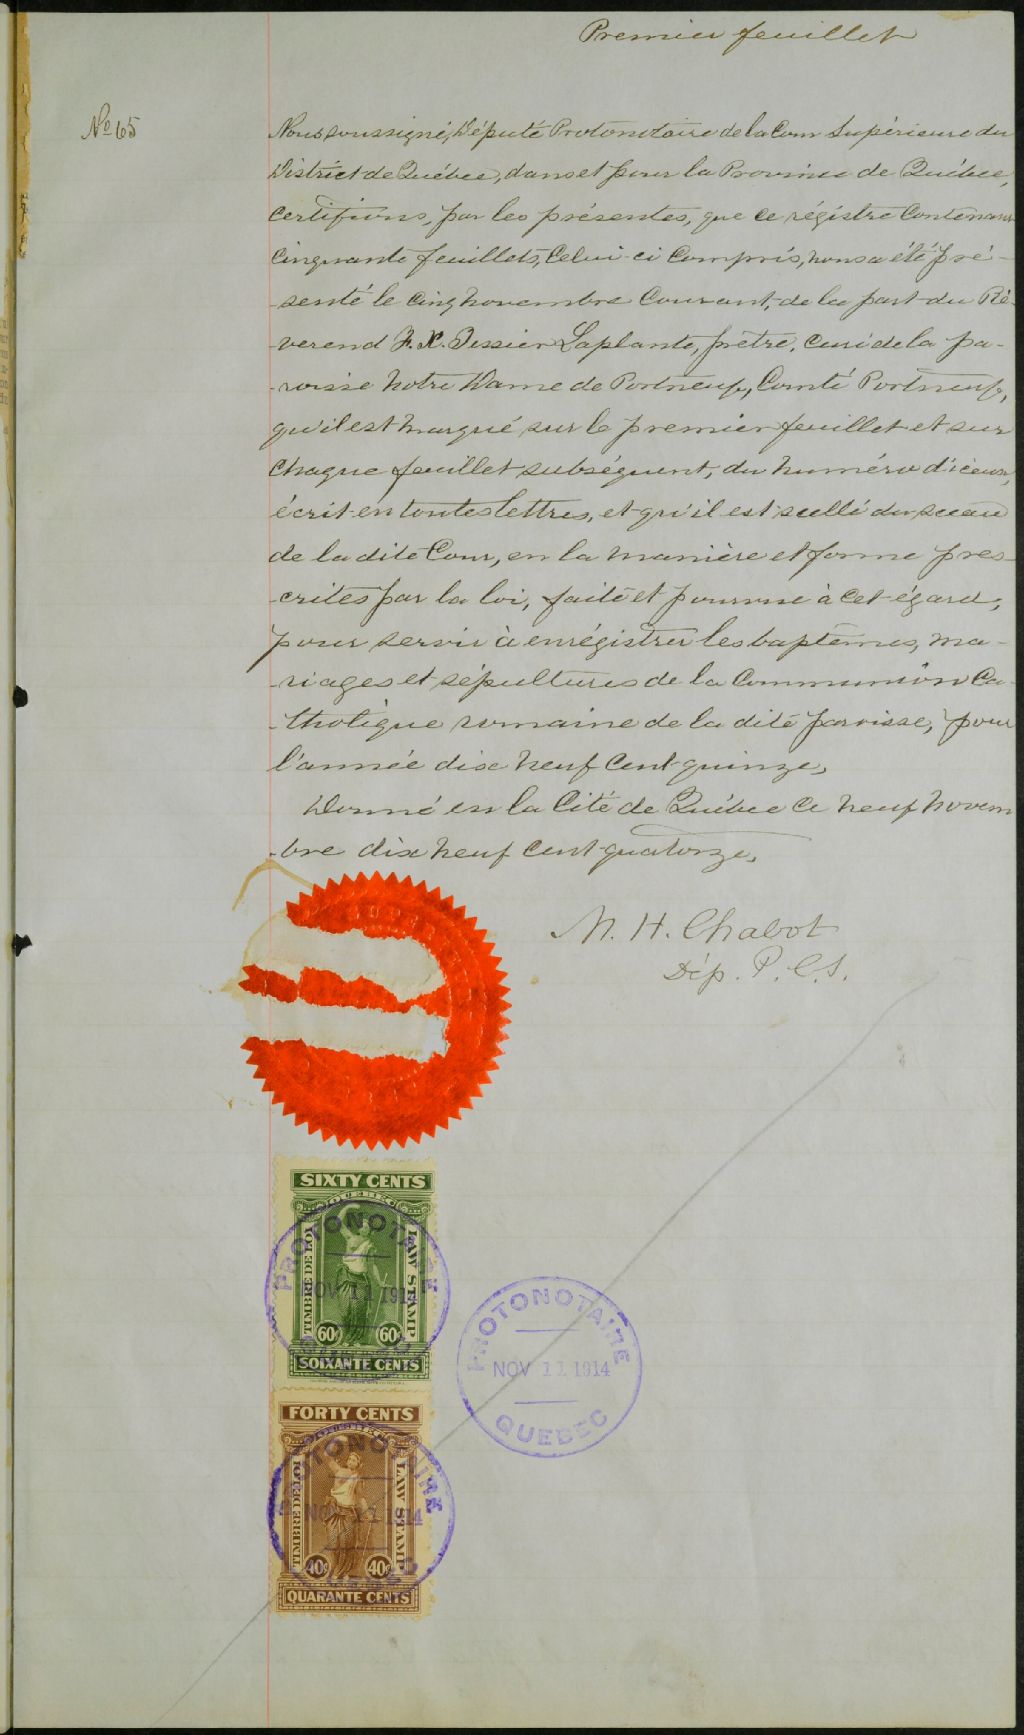 Premier feuillet
No 65
Nous soussigné, Député Protonotaire de la Cour Supérieure du
District de Québec, dans et pour la Province de Québec,
certifions, par les présentes, que ce régistre contenant
cinquante feuillets, celui-ci compris, nous a été pré-
-senté le cinq novembre courant, de la part du Ré-
-verend F. X. Tessier Laplante, prêtre, curé de la pa-
-roisse Notre Dame de Portneuf, Comté Portneuf,
qu'il est marqué sur le premier feuillet et sur
chaque feuillet subséquent, du numéro d'iceux,
écrit en toutes lettres, et qu'il est scellé du sceau
de la dite Cour, en la manière et forme pres-
-crites par la loi, faite et pourvue à cet égard,
pour servir à enrégistrer les baptêmes, ma-
-riages et sépultures de la Communion Ca-
-tholique romaine de la dite paroisse, pour
l'année dix neuf cent quinze,
Donné en la Cité de Québec ce neuf novem
-bre dix neuf cent quatorze,
N. H. Chabot
Dép. P. C. S.
SIXTY CENTS
QUEBEC
TIMBRE DE LOI
LAW STAMP
PROTONOTAIRE
NOV 11 1914
QUEBEC
60c 60c
SOIXANTE CENTS
PROTONOTAIRE
NOV 11 1914
QUEBEC
FORTY CENTS
TIMBRE DE LOI
LAW STAMP
PROTONOTAIRE
NOV 11 1914
QUEBEC
40c 40c
QUARANTE CENTS